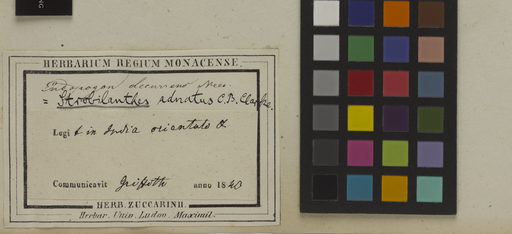 HERBARIUM REGIUM MONACENSE.
Endopogon decurrens Nees.
= Strobilanthes C.B. Clarke.
Legi t in India orientale
Communicavit Griffith anno 1840
HERB. ZUCCARINII.
Herbar. Univ. Ludov. Maximil.